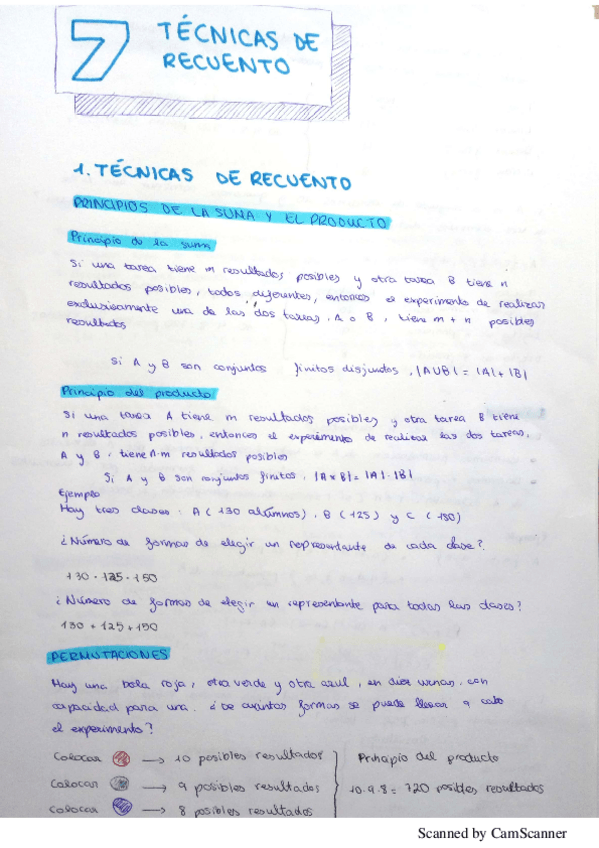 7 TÉCNICAS DE
RECUENTO
1. TÉCNICAS DE RECUENTO
PRINCIPIOS DE LA SUMA Y EL PRODUCTO
Principio de la suma
Si una tarea tiene m resultados posibles y otra tarea B tiene n
resultados posibles, todos diferentes, entonces el experimento de realizar
exclusivamente una de las dos tareas, A o B, tiene m + n posibles
resultados
Si A y B son conjuntos finitos disjundos, |AUB| = |A| + |B|
Principio del producto
Si una tarea A tiene m resultados posibles y otra tarea B tiene
n resultados posibles, entonces el experimento de realizar las dos tareas,
A y B, tiene n·m resultados posibles
Si A y B son conjuntos finitos, |A x B| = |A|·|B|
Ejemplo
Hay tres clases: A (130 alumnos), B (125) y C (150)
¿Número de formas de elegir un representante de cada clase?
130 · 125 · 150
¿Número de formas de elegir un representante para todas las clases?
130 + 125 + 150
PERMUTACIONES
Hay una bola roja, otra verde y otra azul, en diez urnas, con
capacidad para una. ¿De cuántas formas se puede llevar a cabo
el experimento?
Colocar → 10 posibles resultados Principio del producto
Colocar → 9 posibles resultados 10·9·8 = 720 posibles resultados
Colocar → 8 posibles resultados
Scanned by CamScanner